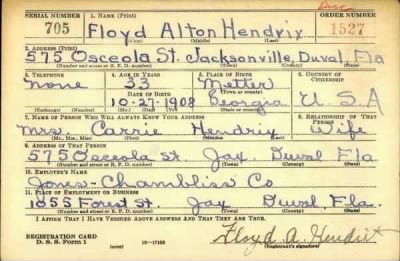 SERIAL NUMBER 1. NAME (Print) ORDER NUMBER
705 Floyd Alton Hendrix 1527
(First) (Middle) (Last)
2. ADDRESS (Print)
575 Osceola St. Jacksonville, Duval Fla
(Number and street or R. F. D. number) (Town) (County) (State)
3. TELEPHONE 4. AGE IN YEARS 5. PLACE OF BIRTH 6. COUNTRY OF CITIZENSHIP
None 33 Metter
DATE OF BIRTH (Town or county)
10-27-1908 Georgia U.S.A
(Mo.) (Day) (Yr.) (State or country)
7. NAME OF PERSON WHO WILL ALWAYS KNOW YOUR ADDRESS 8. RELATIONSHIP OF THAT PERSON
Mrs. Carrie Hendrix Wife
(Mr., Mrs., Miss) (First) (Middle) (Last)
9. ADDRESS OF THAT PERSON
575 Osceola St. Jax Duval Fla
(Number and street or R. F. D. number) (Town) (County) (State)
10. EMPLOYER'S NAME
Jones-Chambliss Co
11. PLACE OF EMPLOYMENT OR BUSINESS
1055 Forest St. Jax Duval, Fla.
(Number and street or R. F. D. number) (Town) (County) (State)
I AFFIRM THAT I HAVE VERIFIED ABOVE ANSWERS AND THAT THEY ARE TRUE.
REGISTRATION CARD
D. S. S. Form 1 (over) 16-17105 Floyd A. Hendrix
(Registrant's signature)